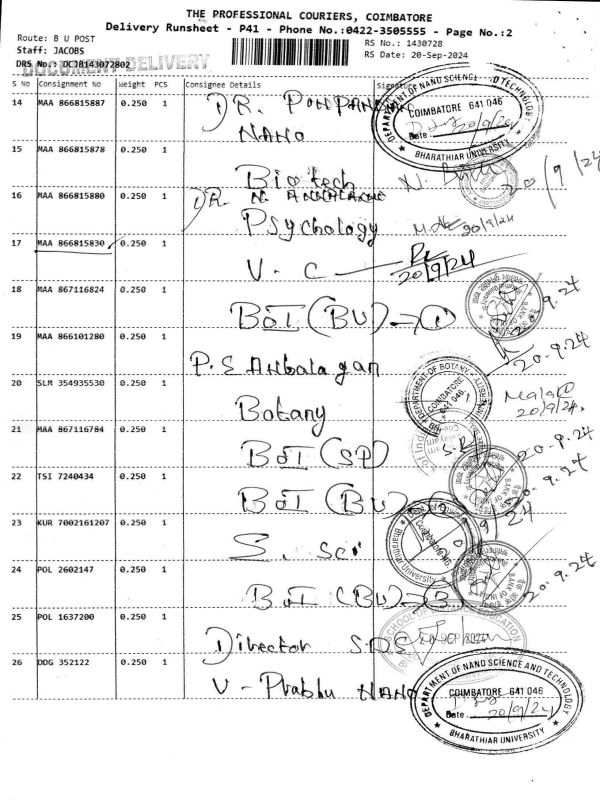 THE PROFESSIONAL COURIERS, COIMBATORE
Delivery Runsheet - P41 - Phone No.:0422-3505555 - Page No.:2
Route: B U POST
RS No.: 1430728
Staff: JACOBS
RS Date: 20-Sep-2024
DRS No.: DCJB143072802
DOCUMENT DELIVERY
S No Consignment No Weight PCS Consignee Details Signature
14 MAA 866815887 0.250 1 DR.
NANO
DEPARTMENT OF NANO SCIENCE AND TECHNOLOGY
COIMBATORE 641 046
Date 20/9/24
BHARATHIAR UNIVERSITY
15 MAA 866815878 0.250 1
Biotech
20/9/24
16 MAA 866815880 0.250 1 DR. N.
Psychology
20/9/24
17 MAA 866815830 0.250 1
V. C
20/9/24
18 MAA 867116824 0.250 1
BOI (BU) → 1
20.9.24
19 MAA 866101280 0.250 1
P. S Anbalagan
20.9.24
20 SLM 354935530 0.250 1
Botany
DEPARTMENT OF BOTANY
COIMBATORE
641 046
20/9/24
21 MAA 867116784 0.250 1
BOI (SP)
20.9.24
22 TSI 7240434 0.250 1
BOI (BU)
20.9.24
23 KUR 7002161207 0.250 1
S. Sci
Bharathiar University
Coimbatore
24 POL 2602147 0.250 1
BOI (BU) → 3
20.9.24
BANK OF INDIA
25 POL 1637200 0.250 1
Director SDE
SCHOOL OF EDUCATION
26 DDG 352122 0.250 1
V - Prabhu NANO
DEPARTMENT OF NANO SCIENCE AND TECHNOLOGY
COIMBATORE 641 046
Date 20/9/24
BHARATHIAR UNIVERSITY